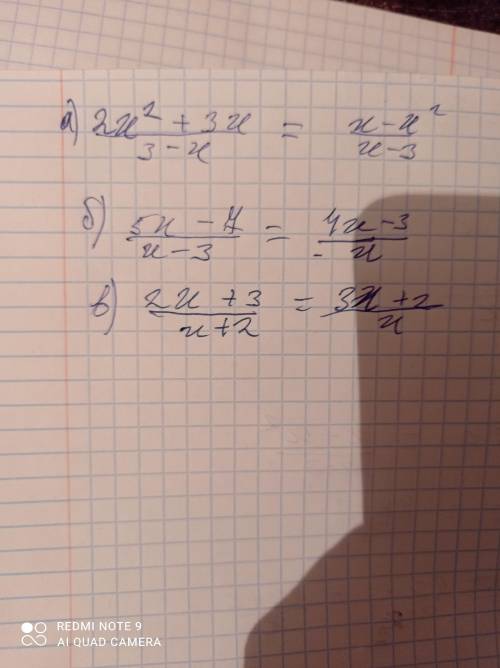 а) (2x² + 3x)/(3 - x) = (x - x²)/(x - 3)
б) (5x - 7)/(x - 3) = (4x - 3)/x
в) (2x + 3)/(x + 2) = (3x + 2)/x
REDMI NOTE 9
AI QUAD CAMERA